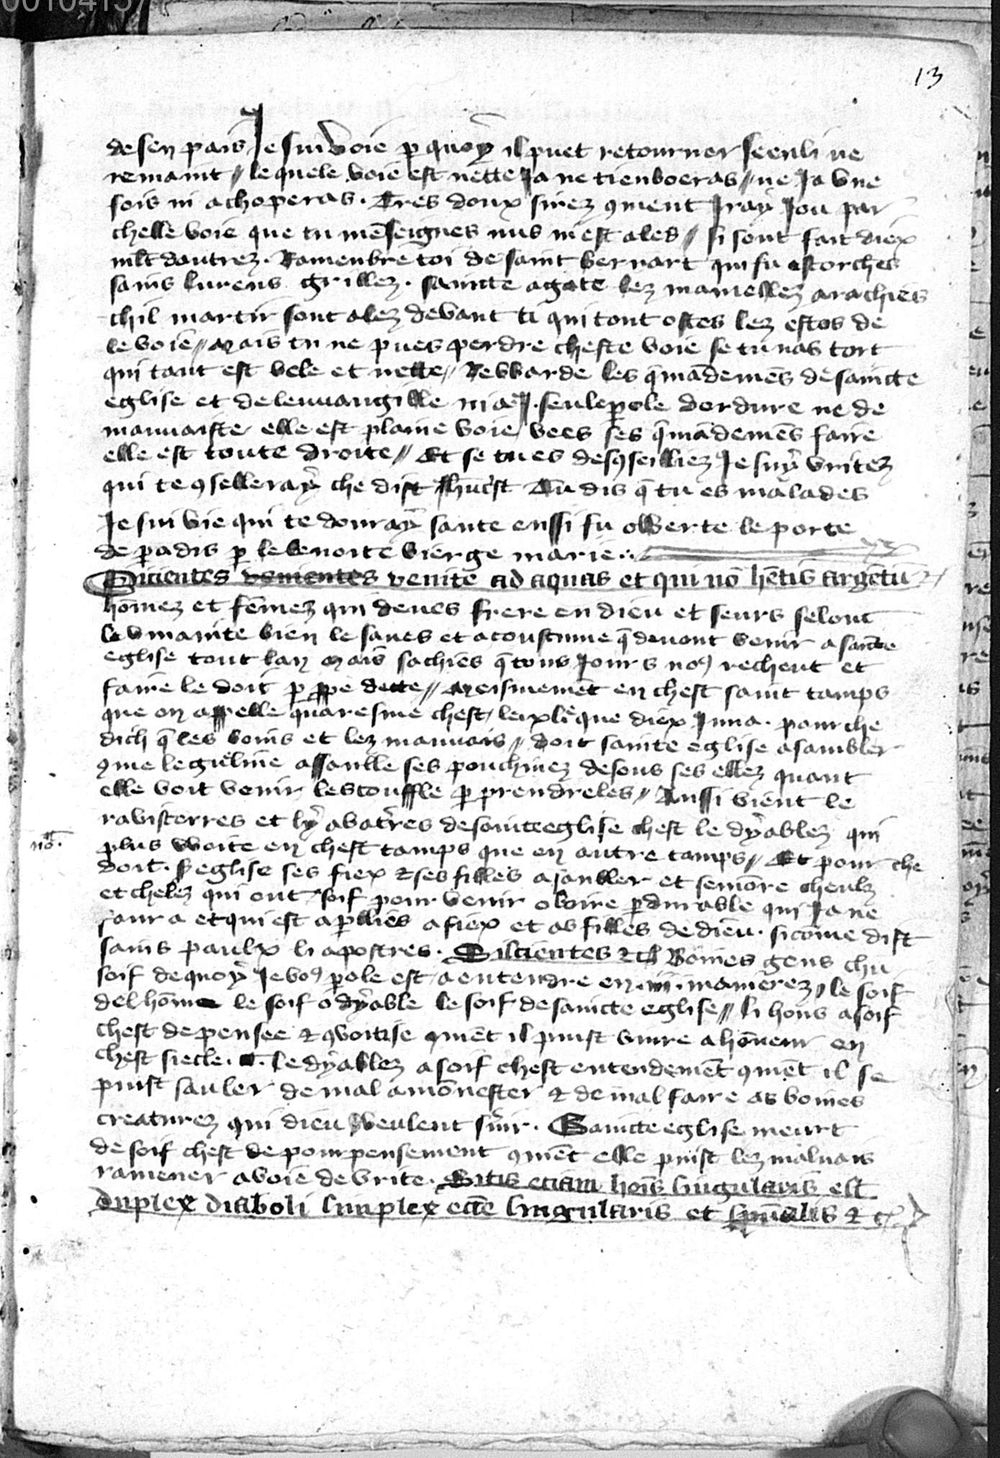 13
de sen pais Je sui voie p quoy il puet retourner se en li ne
remaint // le quele voie est nette Ja ne tenboeras // ne Ja vne
fois ni achoperas . Tres doux sirez 9ment Jray Jou par
chelle voie que tu mēseignes nus nest ales // si sont fait diex
mlt dautrez . Ramenbre toi de saint bernart qui fu estorches
sains lurens grillez . sainte agate lez mamellez arachies
chil martir sont alez devant ti qui tout ostes lez estos de
le voie // mais tu ne pues perdre cheste voie se tu nas tort
qui tant est bele et nette // Rewarde les qmādemēs de saincte
eglise et de leuuangille ni a J . seule pole dordure ne de
mauuaiste elle est plaine voie vees ses qmādemēs faire
elle est toute droite // Et se tu es des9seilliez Je suy vritez
qui te 9selleray che dist Ihucrist Tu dis q tu es malades
Je sui vie qui te donray sante enssi fu owerte le porte
de padis p le benoite vierge marie .
Sicientes venientes venite ad aquas et qui nō hētis argētū
hōmez et fēmez qui deues frere en dieu et seurs selonc
le vmanite bien le saues et a coustume q deuont venir a saīte
eglise tout lan mais sachies q tous Jours no9 recheut et
faire le doit p ppe dette // meismemēt en chest saint tamps
que on appelle quaresme chest que diex Juna . pour che
dich q les bons et lez mauuais // doit sainte eglise asambler
9me le geline assanlle ses pouchinez desous ses ellez quant
elle voit venir lescouffle p prendre les // Aussi vient le
ravisterres et ly abatres de saincte eglise chest le dyablez qui
no.
plus woite en chest tamps que en autre tamps // Et pour che
doit . s eglise ses fiex & ses filles asanbler et semōre cheulz
et chelez qui ont soif pour venir oboire pdurable qui Ja ne
faura et qui est apllies a fiex et as filles de dieu . sicōme dist
sains paulx li apostres . Silcientes &c Boines gens chu
soif de quoy Je vo9 pole est a entendre en . iii . manierez // le soif
del hōme le soif o dyable le soif de saincte eglise // li hons a soif
chest de pensee & 9voitise 9mēt il puist viure a hōneur en
chest siecle . le dyablez a soif chest entendemēt 9mēt il se
puist sauler de mal amōnester & de mal faire as boines
creaturez qui dieu weulent suir . Saincte eglise meurt
de soif chest de pourpensement 9mēt elle puist lez malvais
ramener a voie de vrite . Sitis etiam hois singularis est
duplex diaboli simplex eccē singularis et &c